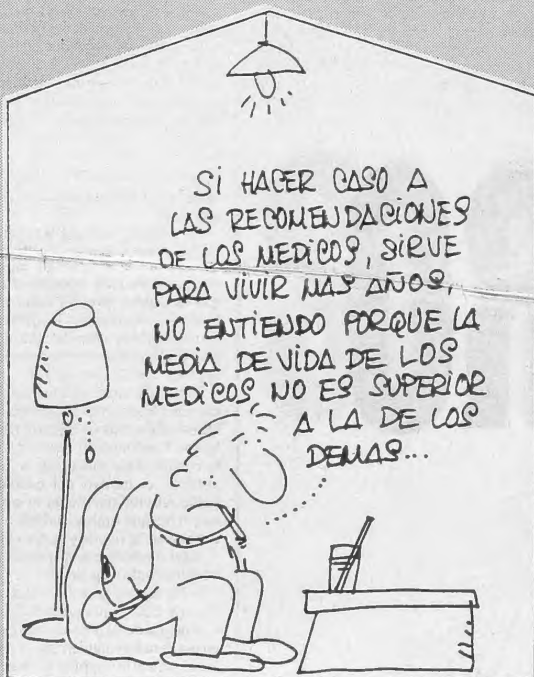 SI HACER CASO A
LAS RECOMENDACIONES
DE LOS MEDICOS, SIRVE
PARA VIVIR MAS AÑOS,
NO ENTIENDO PORQUE LA
MEDIA DE VIDA DE LOS
MEDICOS NO ES SUPERIOR
A LA DE LOS
DEMAS...